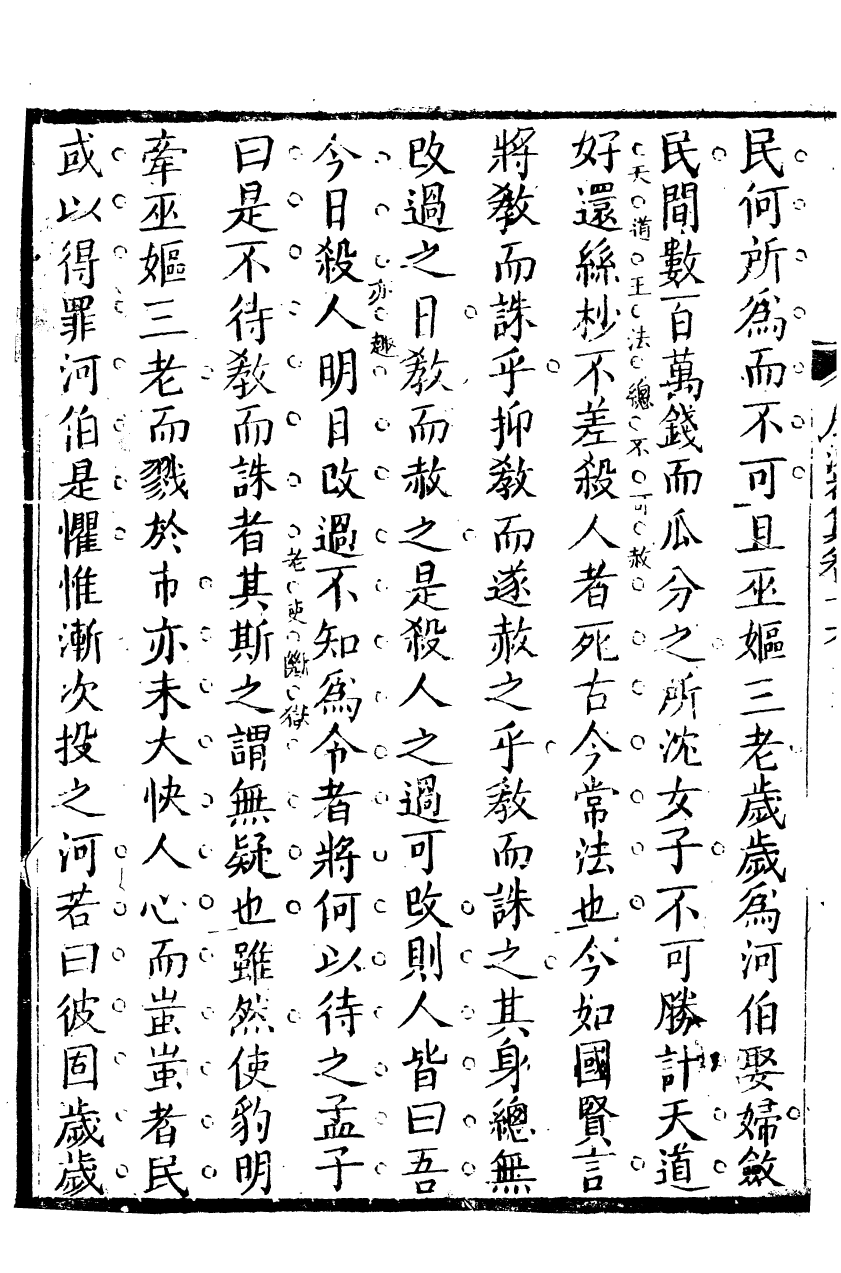 民何所爲而不可且巫嫗三老歲歲爲河伯娶婦斂
民間數百萬錢而瓜分之所沈女子不可勝計天道
天道王法總不可赦
好還絲杪不差殺人者死古今常法也今如國賢言
將敎而誅乎抑敎而遂赦之乎敎而誅之其身總無
改過之日敎而赦之是殺人之過可改則人皆曰吾
亦趣
今日殺人明日改過不知爲令者將何以待之孟子
老吏斷獄
曰是不待敎而誅者其斯之謂無疑也雖然使豹明
牽巫嫗三老而戮於市亦未大快人心而蚩蚩者民
或以得罪河伯是懼惟漸次投之河若曰彼固歲歲